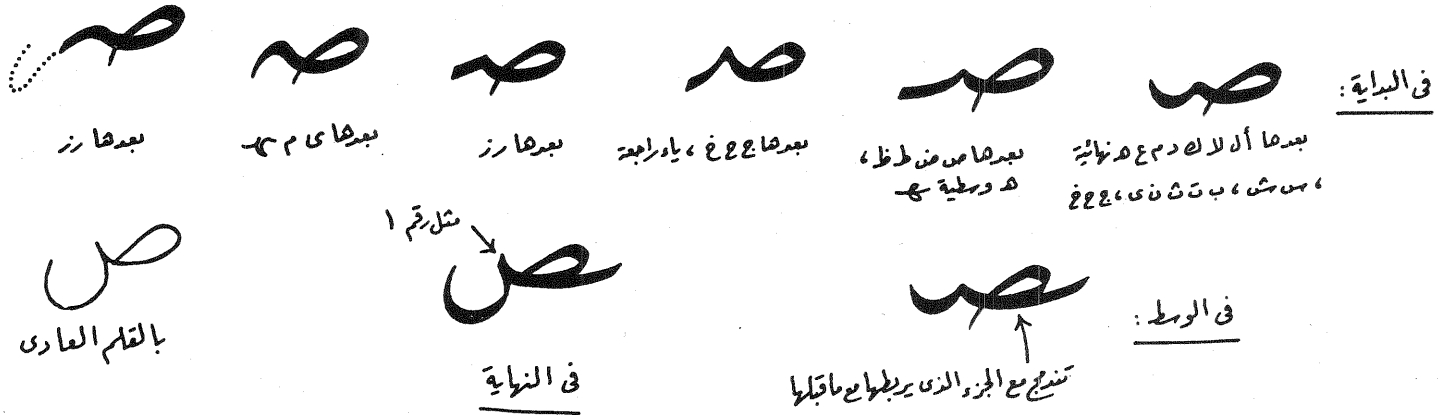 فى البداية :
صـ صـ صـ صـ صـ صـ
بعدها أ ل لا ك د م ع ه نهائية
، س ش ، ب ت ث ن ى ، ج ح خ
بعدها ص ض ط ظ ،
ه وسطية ـهـ
بعدها ج ح خ ، ياء راجعة
بعدها ر ز
بعدها ى م ـهـ
بعدها ر ز
فى الوسط :
ـصـ
تندمج مع الجزء الذى يربطها مع ما قبلها
مثل رقم ١
ـص
فى النهاية
ص
بالقلم العادى